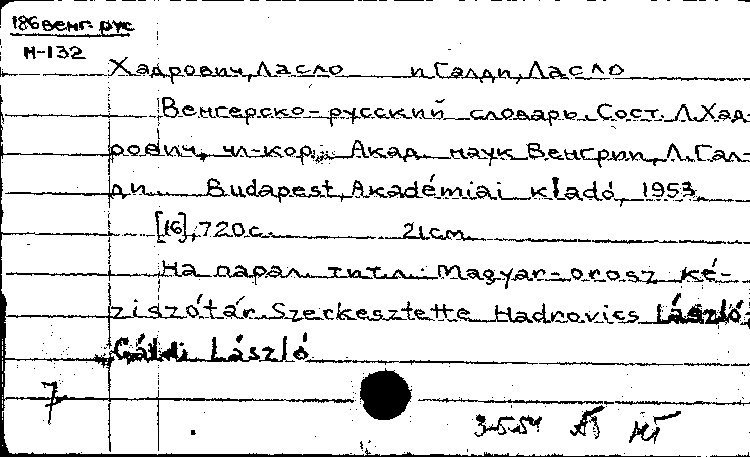 186 венг. рус
Н-132
Хадрович, Ласло и Галди, Ласло
Венгерско-русский словарь. Сост. Л. Хад-
рович, чл-кор. Акад. наук Венгрии, Л. Гал-
ди. Budapest, Akadémiai kiadó, 1953.
[16], 720 с. 21 cm.
На парал. тит. л.: Magyar-orosz ké-
ziszótár. Szerkesztette Hadrovics László,
Gáldi László
7
3-5.54